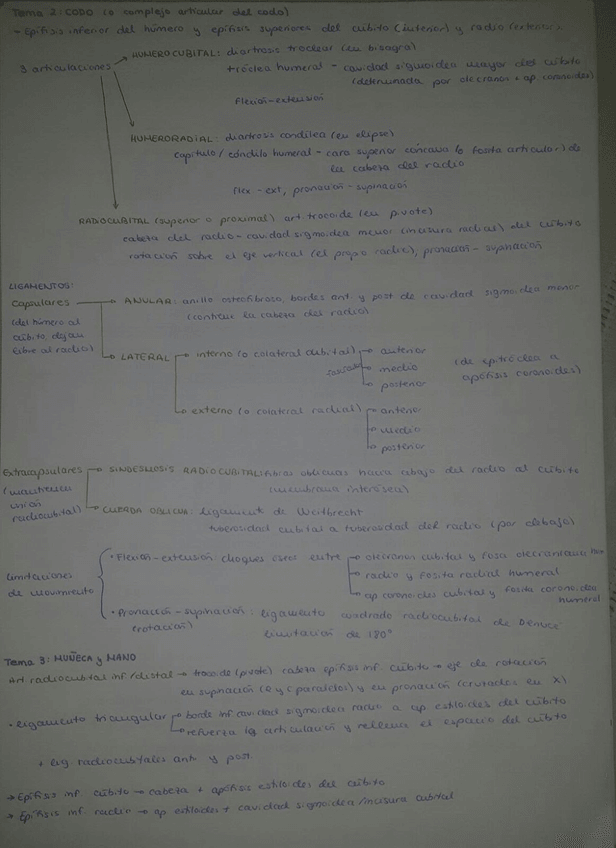 Tema 2: CODO (o complejo articular del codo)
- Epífisis inferior del húmero y epífisis superiores del cúbito (interior) y radio (exterior)
3 articulaciones → HUMEROCUBITAL: diartrosis troclear (en bisagra)
tróclea humeral - cavidad sigmoidea mayor del cúbito
(determinada por olécranos + ap. coronoides)
Flexión-extensión
HUMERORADIAL: diartrosis condílea (en elipse)
capítulo / cóndilo humeral - cara superior cóncava (o fosita articular) de
la cabeza del radio
flex - ext, pronación - supinación
RADIOCUBITAL (superior o proximal) art. trocoide (en pivote)
cabeza del radio - cavidad sigmoidea menor (incisura radial) del cúbito
rotación sobre el eje vertical (el propio radio), pronación - supinación
LIGAMENTOS:
Capsulares → ANULAR: anillo osteofibroso, bordes ant. y post de cavidad sigmoidea menor
(del húmero al (contiene la cabeza del radio)
cúbito, dejan
libre al radio) → LATERAL → interno (o colateral cubital) → anterior
fascias → medio (de epitróclea a
→ posterior apófisis coronoides)
→ externo (o colateral radial) → anterior
→ medio
→ posterior
Extracapsulares → SINDESMOSIS RADIOCUBITAL: fibras oblicuas hacia abajo del radio al cúbito
(mantienen (membrana interósea)
unión
radiocubital) → CUERDA OBLICUA: ligament de Weitbrecht
tuberosidad cubital a tuberosidad del radio (por debajo)
Limitaciones de movimiento
• Flexión-extensión: choques óseos entre → olécranon cubital y fosa olecraneana hum
→ radio y fosita radial humeral
→ ap coronoides cubital y fosita coronoidea
humeral
• Pronación-supinación: ligamento cuadrado radiocubital de Denucé
(rotación) limitación de 180°
Tema 3: MUÑECA y MANO
Art. radiocubital inf/distal → trocoide (pivote) cabeza epífisis inf. cúbito → eje de rotación
en supinación (R y C paralelos) y en pronación (cruzados en X)
• Ligamento triangular → borde inf cavidad sigmoidea radio a ap estiloides del cúbito
→ refuerza la articulación y rellena el espacio del cúbito
+ lig. radiocubitales ant. y post.
→ Epífisis inf. cúbito → cabeza + apófisis estiloides del cúbito
→ Epífisis inf. radio → ap estiloides + cavidad sigmoidea/incisura cubital